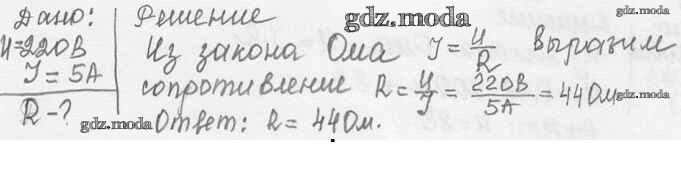 Дано: Решение gdz.moda gdz.moda
U=220В Из закона Ома J = U/R Выразим
J = 5А сопротивление R = U/J = 220В/5А = 44Ом gdz.moda
R - ? gdz.moda Ответ: R = 44Ом.